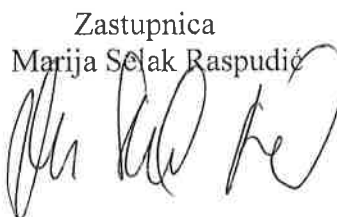 Zastupnica
Marija Selak Raspudić